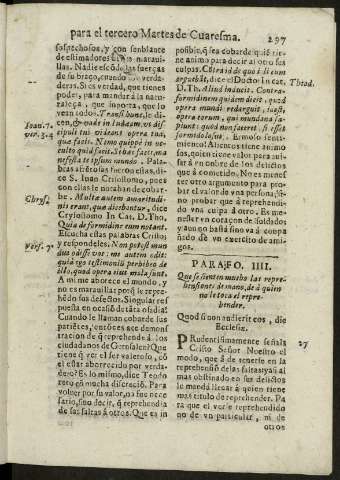 para el tercero Martes de Cuaresma. 297
sospechosos, y con senblante
de estimadores de sus maravi-
llas. Nadie escōde las fuerças
de su braço, quando son verda-
deras. Si es verdad, que tienes
poder, para mandar à la natu-
raleça, que importa, que lo
vean todos. Transi hunc, le di-
cen, & vade in Iudaeam, vt dis-
cipuli tui videant opera tua,
quae facis. Nemo quippè in oc-
culto quid facit. Si haec facis, ma-
nifesta te ipsum mundo. Pala-
bras afrētosas fuerō estas, dice
S. Iuan Crisostomo, pues
con ellas le notaban de cobar-
be. Multa autem amaritudi-
nis erant, quae dicebantur, dice
Crysostomo In Cat. D. Tho.
Quia de formidine eum notant.
Escucha estas palabras Cristo,
y respondeles. Non potest mun-
dus odisse vos: me autem odit:
quia ego testimonii perhibeo de
illo, quod opera eius mala sunt.
A mi me aborece el mundo, y
no es maravilla: porq̄ le repre-
hēdo sus delictos. Singular res
puesta en ocasiō de tāta osadia!
Cuando le llaman cobarde sus
pariētes, entonces ace demon-
tracion de q̄ reprehende à los
ciudadanos de Gerusalen? Que
tiene q̄ ver el ser valeroso, cō
el estar aborrecido por verda-
dero? Es lo mismo, dice Teodo
rero cō mucha discreciō. Para
volver por su valor, a fue nece
sario, sino decir, q̄ reprehendia
de sus faltas à otros. Que es in
posible, q̄ sea cobarde quiē tie-
ne animo para decir al otro ses
culpas. Cōtra id de quo ii eum
arguebāt, dice el Doctor In cat.
D. Th. Aliud inducit. Contra
formidinem quidem dicit, quod
opera mundi redarguit, iusti,
opera eorum, qui mundana sa-
piunt: quod non faceret, si esset
formidolosus. Emolo senti-
miento! Alientos tiene animo
sos, quien tiene valor para aui-
sar à un noble de los delictos
que à cometido. No es menes
ter otro argumento para pro-
bar el valor dō vna persona, si-
no probar que à reprehendi-
do vna culpa à otro. Es me-
nester vn coraçon de soldados
y aun no basta sino va à conpa
ñado de vn exercito de ami-
gos.
PARAFO. IIII.
Que se sienten mucho las repre-
hensiones de mano, de à quien
no le toca el repre-
hender.
Quod si non audierit eos, dic
Ecclesiæ.
PRudentisimamente señala
Cristo Señor Nuestro el
modo, que à de tenerse en la
reprehensiō de las faltas; y si al
mas obstinado en ses delictos
le manda llevar à quien tienes
mas titulo de reprehender. Pa
ra que el verse reprehendido
no de vn particular, ni de
otros
Ioan. 7.
ver. 3. 4
Chrys.
Vers. 7.
Theod.
27